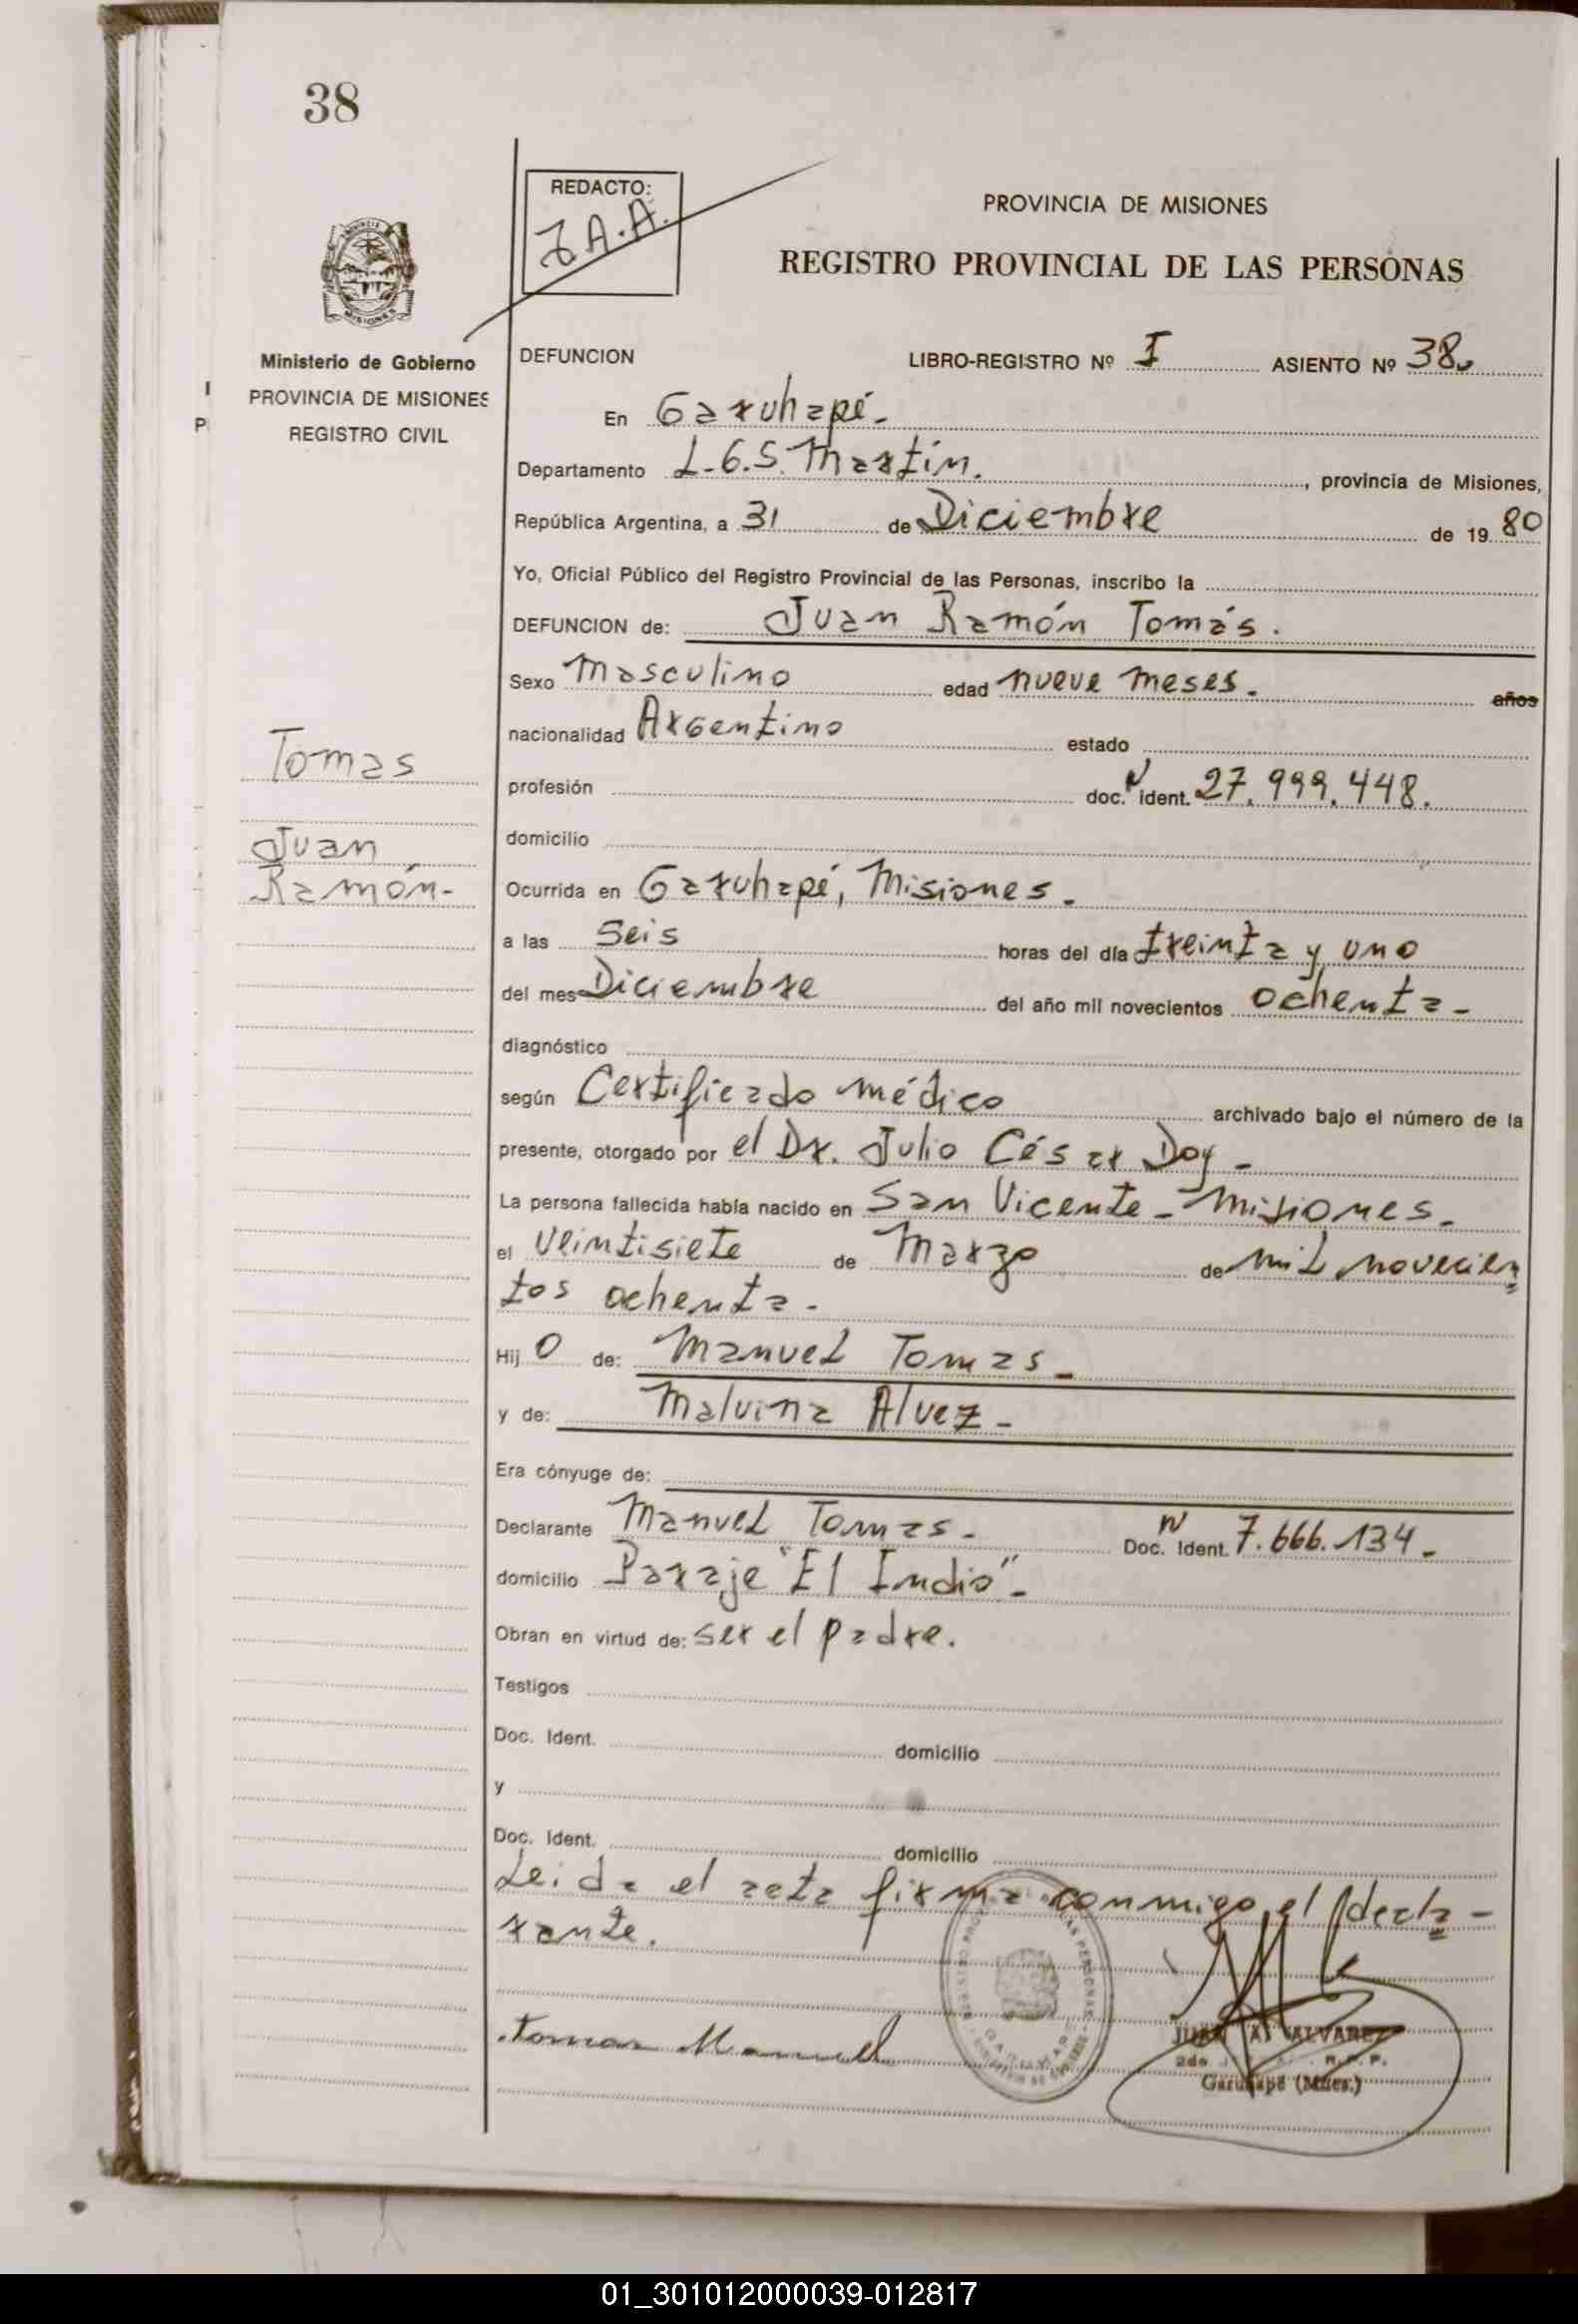 38
REDACTO:
J.A.A.
PROVINCIA DE MISIONES
REGISTRO PROVINCIAL DE LAS PERSONAS
MISIONES
Ministerio de Gobierno
PROVINCIA DE MISIONES
REGISTRO CIVIL
DEFUNCION LIBRO-REGISTRO Nº I ASIENTO Nº 38.
En Garuhapé.
Departamento L.G.S. Martín. , provincia de Misiones,
República Argentina, a 31 de Diciembre de 19 80
Yo, Oficial Público del Registro Provincial de las Personas, inscribo la
DEFUNCION de: Juan Ramón Tomás.
Sexo Masculino edad nueve meses. años
nacionalidad Argentino estado
profesión doc. N ident. 27.999.448.
domicilio
Tomas
Juan
Ramón-
Ocurrida en Garuhapé, Misiones.
a las Seis horas del día treinta y uno
del mes Diciembre del año mil novecientos ochenta-
diagnóstico
según Certificado médico archivado bajo el número de la
presente, otorgado por el Dr. Julio César Doy-
La persona fallecida había nacido en San Vicente - Misiones.
el veintisiete de Marzo de mil novecien
tos ochenta.
Hij o de: Manuel Tomas-
y de: Malvina Alvez-
Era cónyuge de:
Declarante Manuel Tomas. Doc. N Ident. 7.666.134-
domicilio Paraje "El Indio"-
Obran en virtud de: ser el padre.
Testigos
Doc. Ident. domicilio
y
Doc. Ident. domicilio
Leida el acta firma conmigo el decla-
rante.
Tomas Manuel
JUAN A. ALVAREZ
R.P.P.
Garuhapé (Mnes.)
01_301012000039-012817